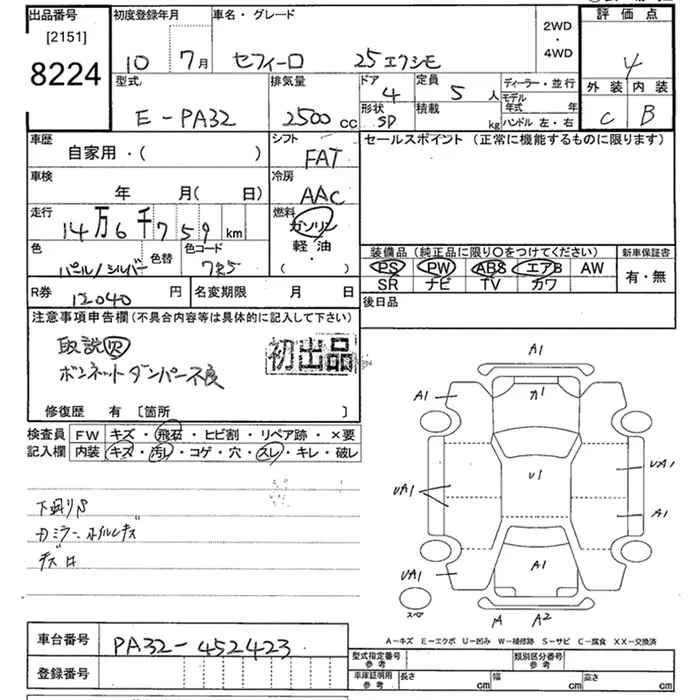 出品番号 初度登録年月 車名・グレード 2WD・4WD 評価点
[2151]
8224 10 7月 セフィーロ 25エクシモ 4
型式 排気量 ドア 定員 ディーラー・並行 外装 内装
E-PA32 2500cc 4 5人 モデル年式 年
形状 積載 ハンドル 左・右 C B
SD kg
車歴 シフト セールスポイント (正常に機能するものに限ります)
自家用・( ) FAT
車検 冷房
年 月( 日) AAC
走行 燃料
14万6千759km ガソリン
色 色替 色コード 軽油
パール/シルバー 7R5 ・( )
装備品 (純正品に限り○をつけてください) 新車保証書
PS PW ABS エアB AW 有・無
SR ナビ TV カワ
R券 12040円 名変期限 月 日 後日品
注意事項申告欄 (不具合内容等は具体的に記入して下さい)
取説
ボンネットダンパー不良
初出品
修復歴 有 [箇所 ]
検査員 FW キズ・飛石・ヒビ割・リペア跡・×要
記入欄 内装 キズ・汚レ・コゲ・穴・スレ・キレ・破レ
下回りS
キズ
A1
A1 カ1
U1 UA1
UA1 A1
UA1 A1
スペア A2
A-キズ E-エクボ U-凹み W-補修跡 S-サビ C-腐食 XX-交換済
車台番号 PA32-452423
登録番号
型式指定番号 参考 類別区分番号 参考
車庫証明用 参考 長さ cm 幅 cm 高さ cm